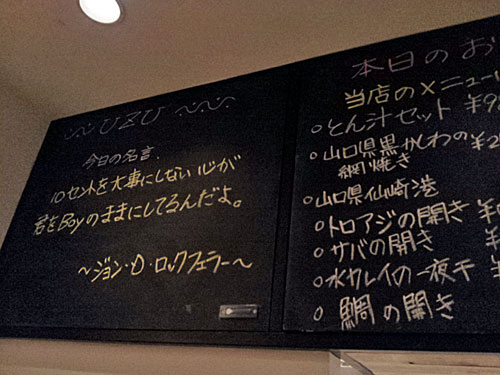 〜〜 UZU 〜〜
今日の名言.
10セントを大事にしない心が
君をBoyのままにしてるんだよ。
〜ジョン・D・ロックフェラー〜
本日のお
当店のメニュー
○とん汁セット ¥9
○山口県黒かしわの ¥2
網焼き
○山口県仙崎港
○トロアジの開き ¥
○サバの開き ¥
○水カレイの一夜干 ¥
○鯛の開き